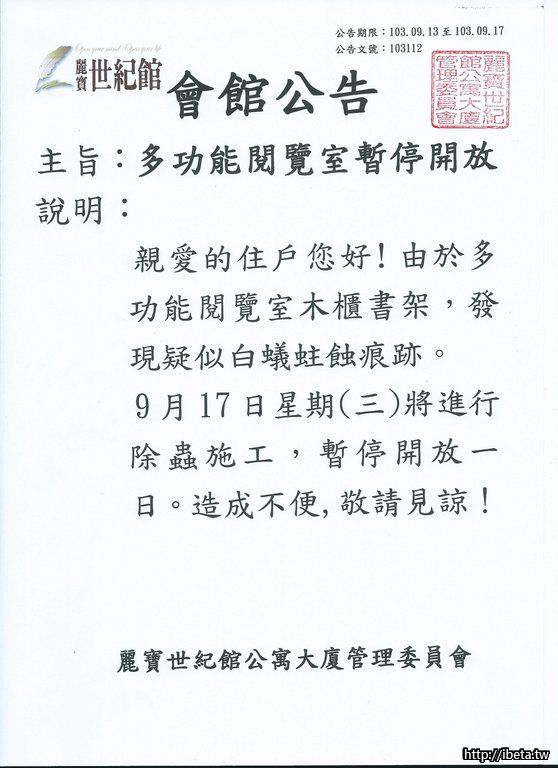 公告期限：103.09.13 至 103.09.17
公告文號：103112
Open your mind Open your life
麗寶 世紀館
會館公告
麗寶世紀
館公寓大廈
管理委員會
主旨：多功能閱覽室暫停開放
說明：
親愛的住戶您好！由於多
功能閱覽室木櫃書架，發
現疑似白蟻蛀蝕痕跡。
9月17日星期(三)將進行
除蟲施工，暫停開放一
日。造成不便,敬請見諒！
麗寶世紀館公寓大廈管理委員會
http://ibeta.tw